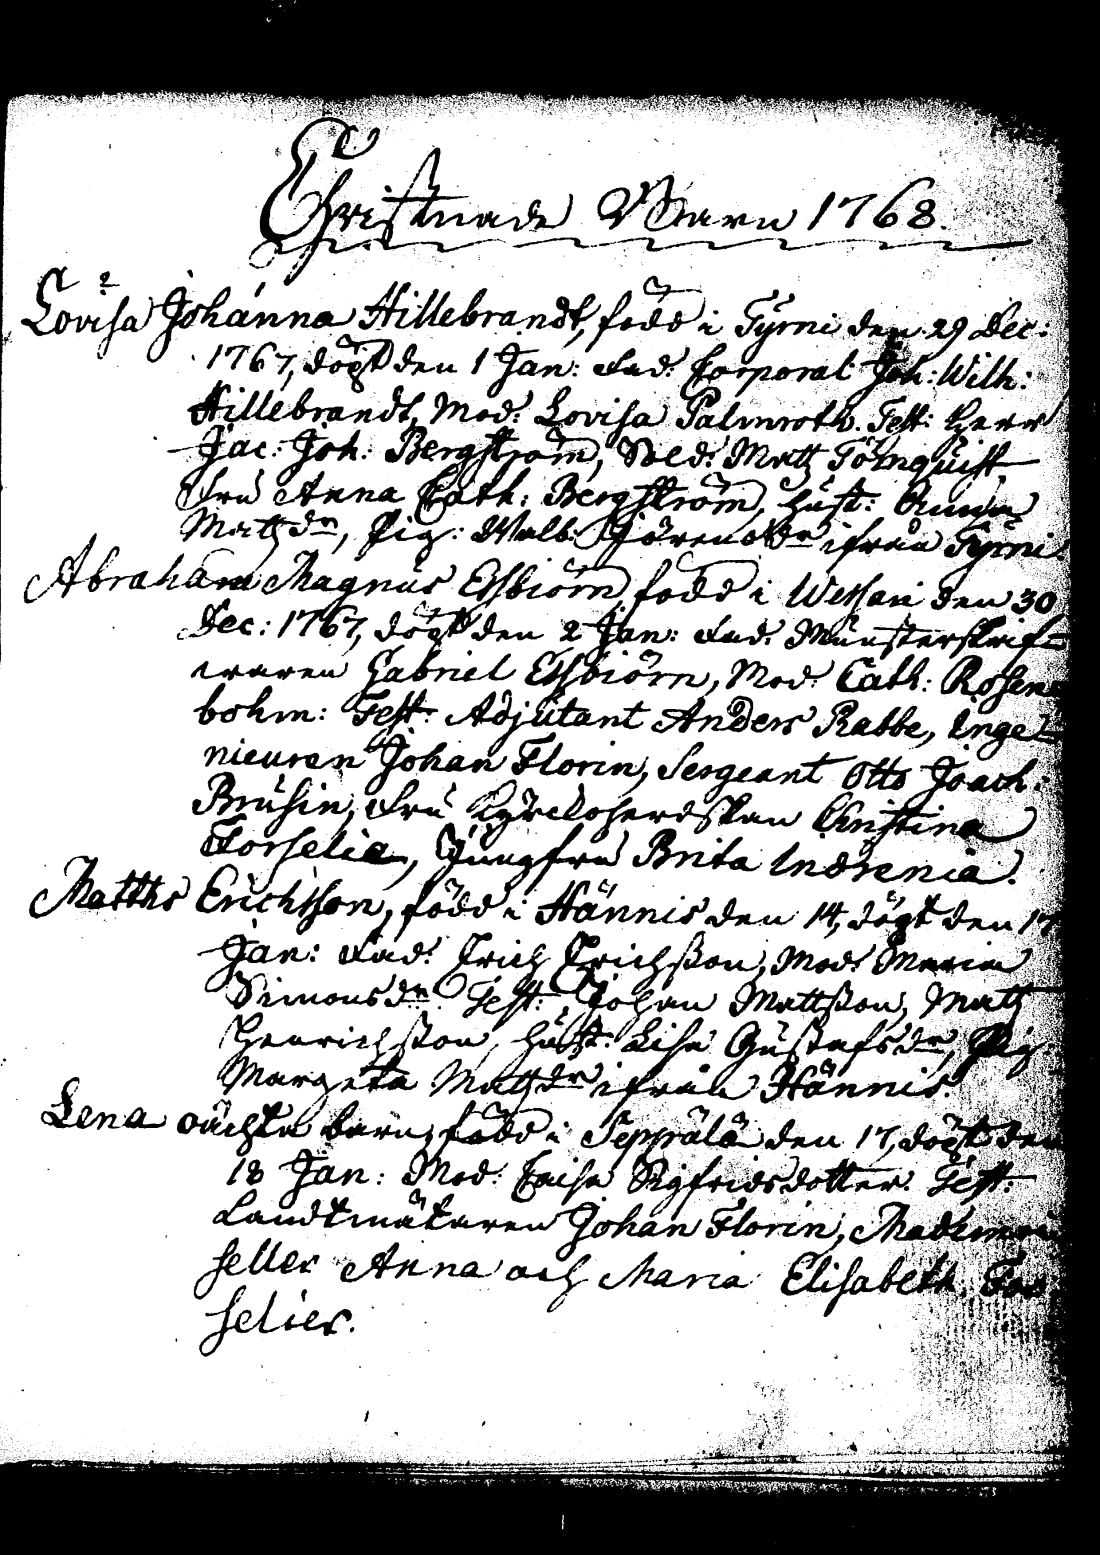 Christnade Barn 1768.
Lovisa Johanna Hillebrandt, född i Tyrni den 29 Dec:
1767, döpt den 1 Jan: Fad: Corporal Joh: Wilh:
Hillebrandt, Mod: Lovisa Palmroth. Test: Herr
Jac: Joh: Bergström, Sold: Matz Törnquist,
Fru Anna Cath: Bergström, Hust: Anna
Matzdr, Pig: Walb: Jörensdr ifrån Tyrni.
Abraham Magnus Essbiörn född i Wessari den 30
Dec: 1767, döpt den 2 Jan: Fad: Münsterskrif-
waren Gabriel Essbiörn, Mod: Cath: Rosen-
bohm: Test: Adjutant Anders Rabbe, Inge-
nieuren Johan Florin, Sergeant Otto Joach:
Brusin, Fru Kyrckoherdskan Christina
Forselia, Jungfru Brita Indrenia.
Matths Erichsson, född i Hännis den 14, döpt den 17
Jan: Fad: Erich Erichsson, Mod: Maria
Simonsdr Test: Johan Mattsson, Matz
Henrichsson, Hust: Lisa Gustafsdr, Pig:
Margeta Matzdr ifrån Hännis.
Lena oächta barn, född i Sepprälä den 17, döpt den
18 Jan: Mod: Caisa Sigfridsdotter. Test:
Landtmätaren Johan Florin, Mademoi
seller Anna och Maria Elisabeth For
selier.